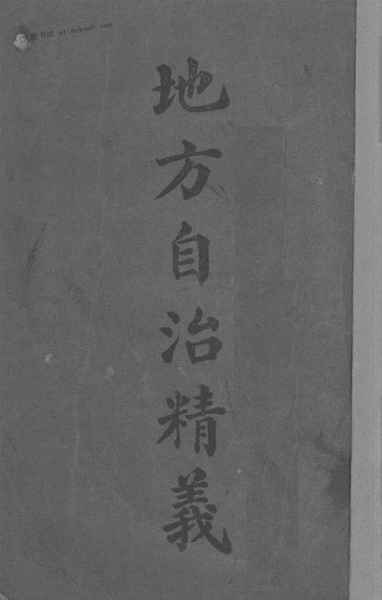 地方自治精義